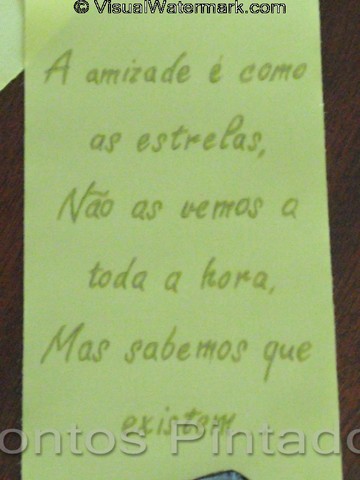 © VisualWatermark.com
A amizade é como
as estrelas,
Não as vemos a
toda a hora,
Mas sabemos que
existem
ontos Pintado